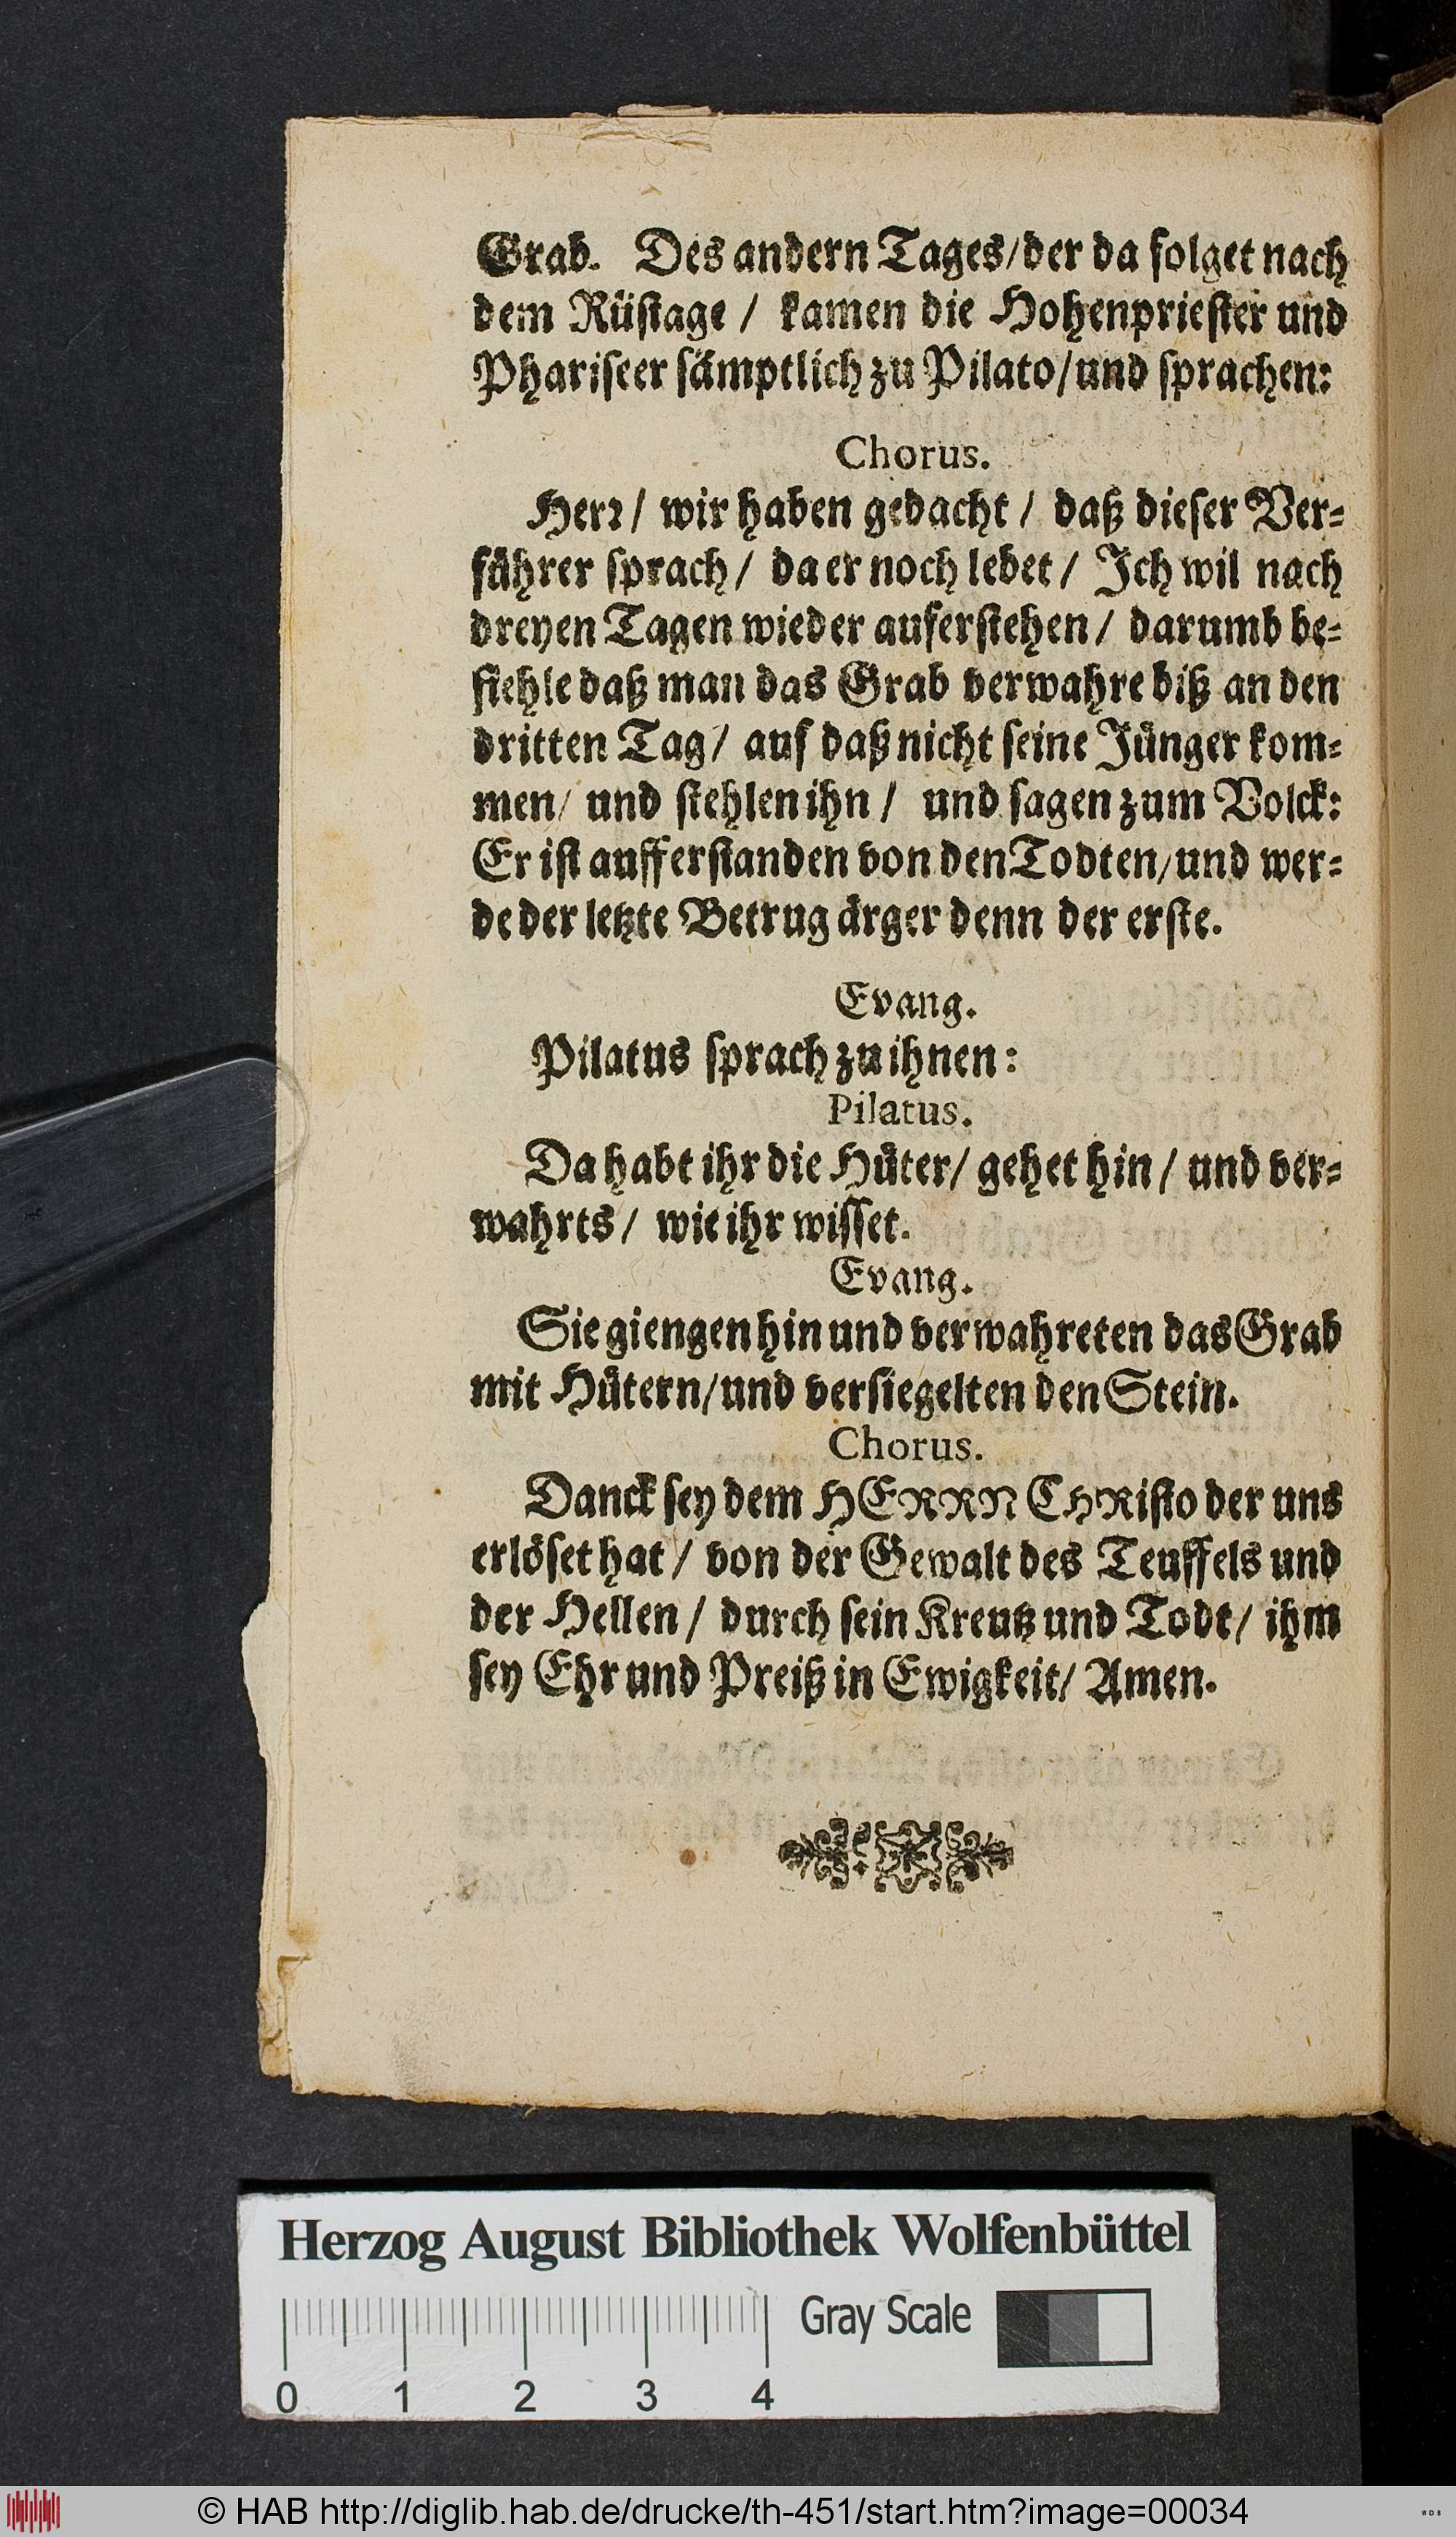 Grab. Des andern Tages/der da folget nach
dem Rüstage / kamen die Hohenpriester und
Phariseer sämptlich zu Pilato/und sprachen:
Chorus.
Herr / wir haben gedacht / daß dieser Ver-
führer sprach / da er noch lebet / Ich wil nach
dreyen Tagen wieder auferstehen / darumb be-
fiehle daß man das Grab verwahre biß an den
dritten Tag / auf daß nicht seine Jünger kom-
men/ und stehlen ihn / und sagen zum Volck:
Er ist aufferstanden von den Todten/und wer-
de der letzte Betrug ärger denn der erste.
Evang.
Pilatus sprach zu ihnen:
Pilatus.
Da habt ihr die Hüter/ gehet hin / und ver-
wahrts / wie ihr wisset.
Evang.
Sie giengen hin und verwahreten das Grab
mit Hütern/und versiegelten den Stein.
Chorus.
Danck sey dem HERRN CHRisto der uns
erlöset hat / von der Gewalt des Teuffels und
der Hellen / durch sein Kreutz und Todt / ihm
sey Ehr und Preiß in Ewigkeit/ Amen.
Herzog August Bibliothek Wolfenbüttel
Gray Scale
0 1 2 3 4
© HAB http://diglib.hab.de/drucke/th-451/start.htm?image=00034
WDB